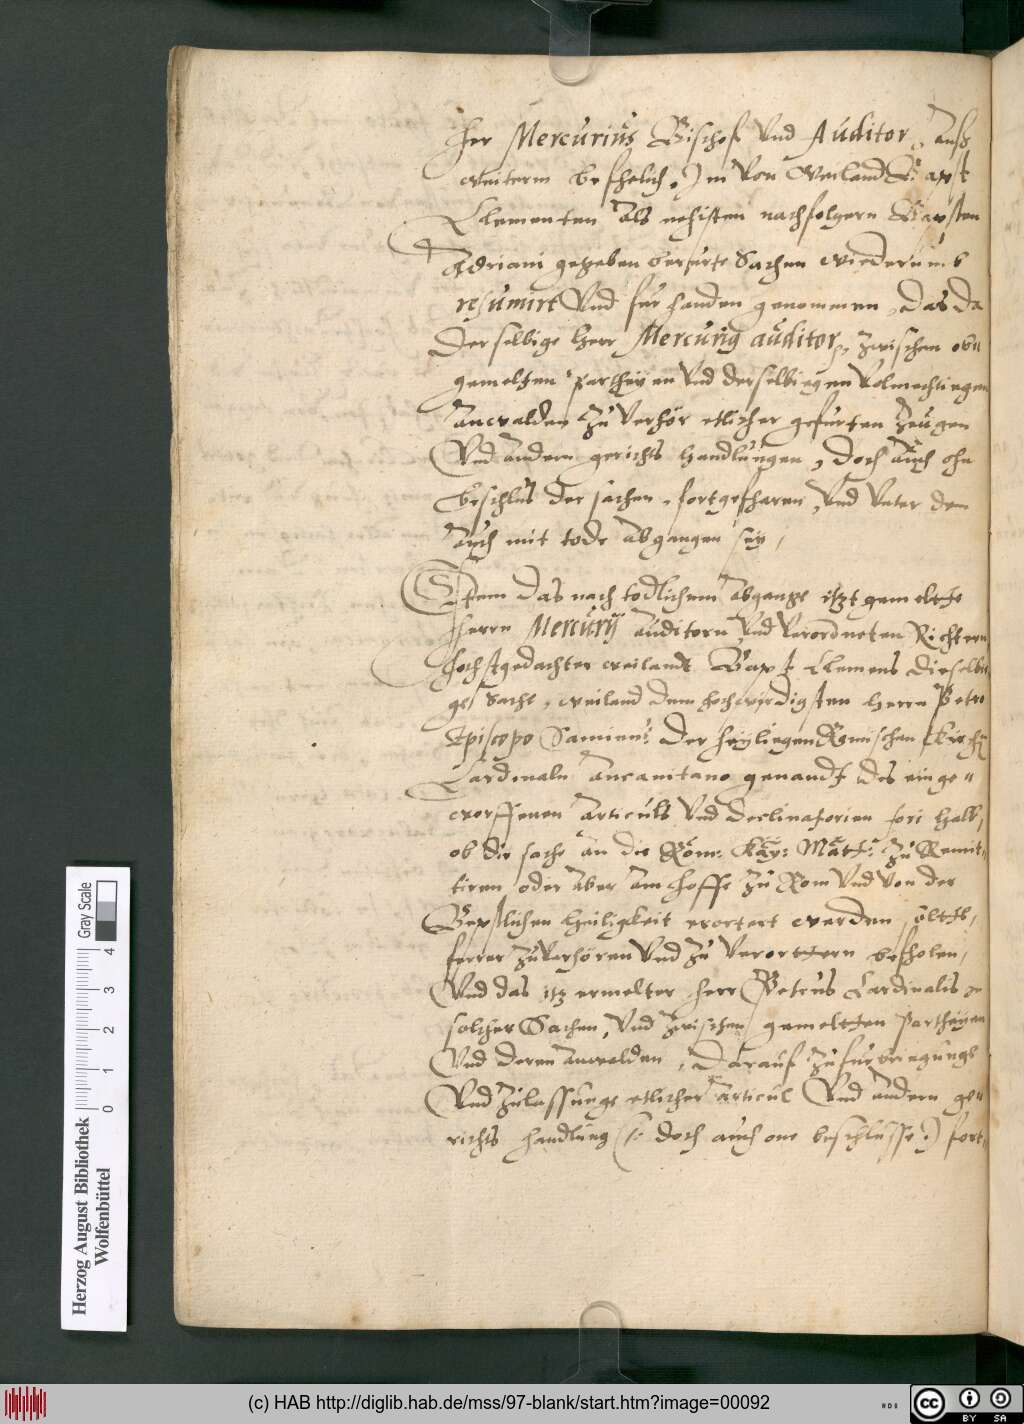 Her Mercurius Bischof und Auditor, Auß
weiterm befhelich, Im von weiland Bapst
Clementen Als nehisten nachfolgern Bapsten
Adriani gegeben berurte Sachen wiederumb
resumirt Und fur handen genommen, Das da
Der selbige Herr Mercurig auditor, zwischen ob
gemelten Partheyen Und derselbiegen Volmechtiegen
Anwalden Zu Verhör etlicher gefurten Zeugen
Und Andern gerichts handlungen, Doch Auch ohn
beschlus der sachen, fortgefharen, Und Unter dem
Auch mit tode Abgangen sey,
Item Das nach todlichem Abgange itzt gemelte
Herrn Mercurij auditorn Und Verordneten Richtern
Hochstgedachter weilandt Bapst Clemens dieselbi
ge Sache, weiland dem hochwirdigsten Herrn Petro
Episcopo Samiens: Der heyliegen Römischen Kirchen
Cardinaln Ancanitano genandt des einge=
worffenen Articuls Und declinatorien fori halb,
ob die sache an die Röm: Kay: Matt: Zu Remit=
tiren oder Aber Am Hoffe Zu Rom Und von der
Bepstlichen Heiligkeit erortert werden
ferrer Zuverhören Und Zu Verorttern befholen,
Und das itz ermelter Herr Petrus Cardinalis in
solcher Sachen, Und Zwischen gemelten Partheyen
Und deren Anwalden, Darauf Zu furbregungs
Und Zulassunge etlicher Articul Und Andern ge=
richts handlung (: doch auch one beschlusse :) fort=
Herzog August Bibliothek
Wolfenbüttel
Gray Scale
0 1 2 3 4
(c) HAB http://diglib.hab.de/mss/97-blank/start.htm?image=00092
cc BY SA